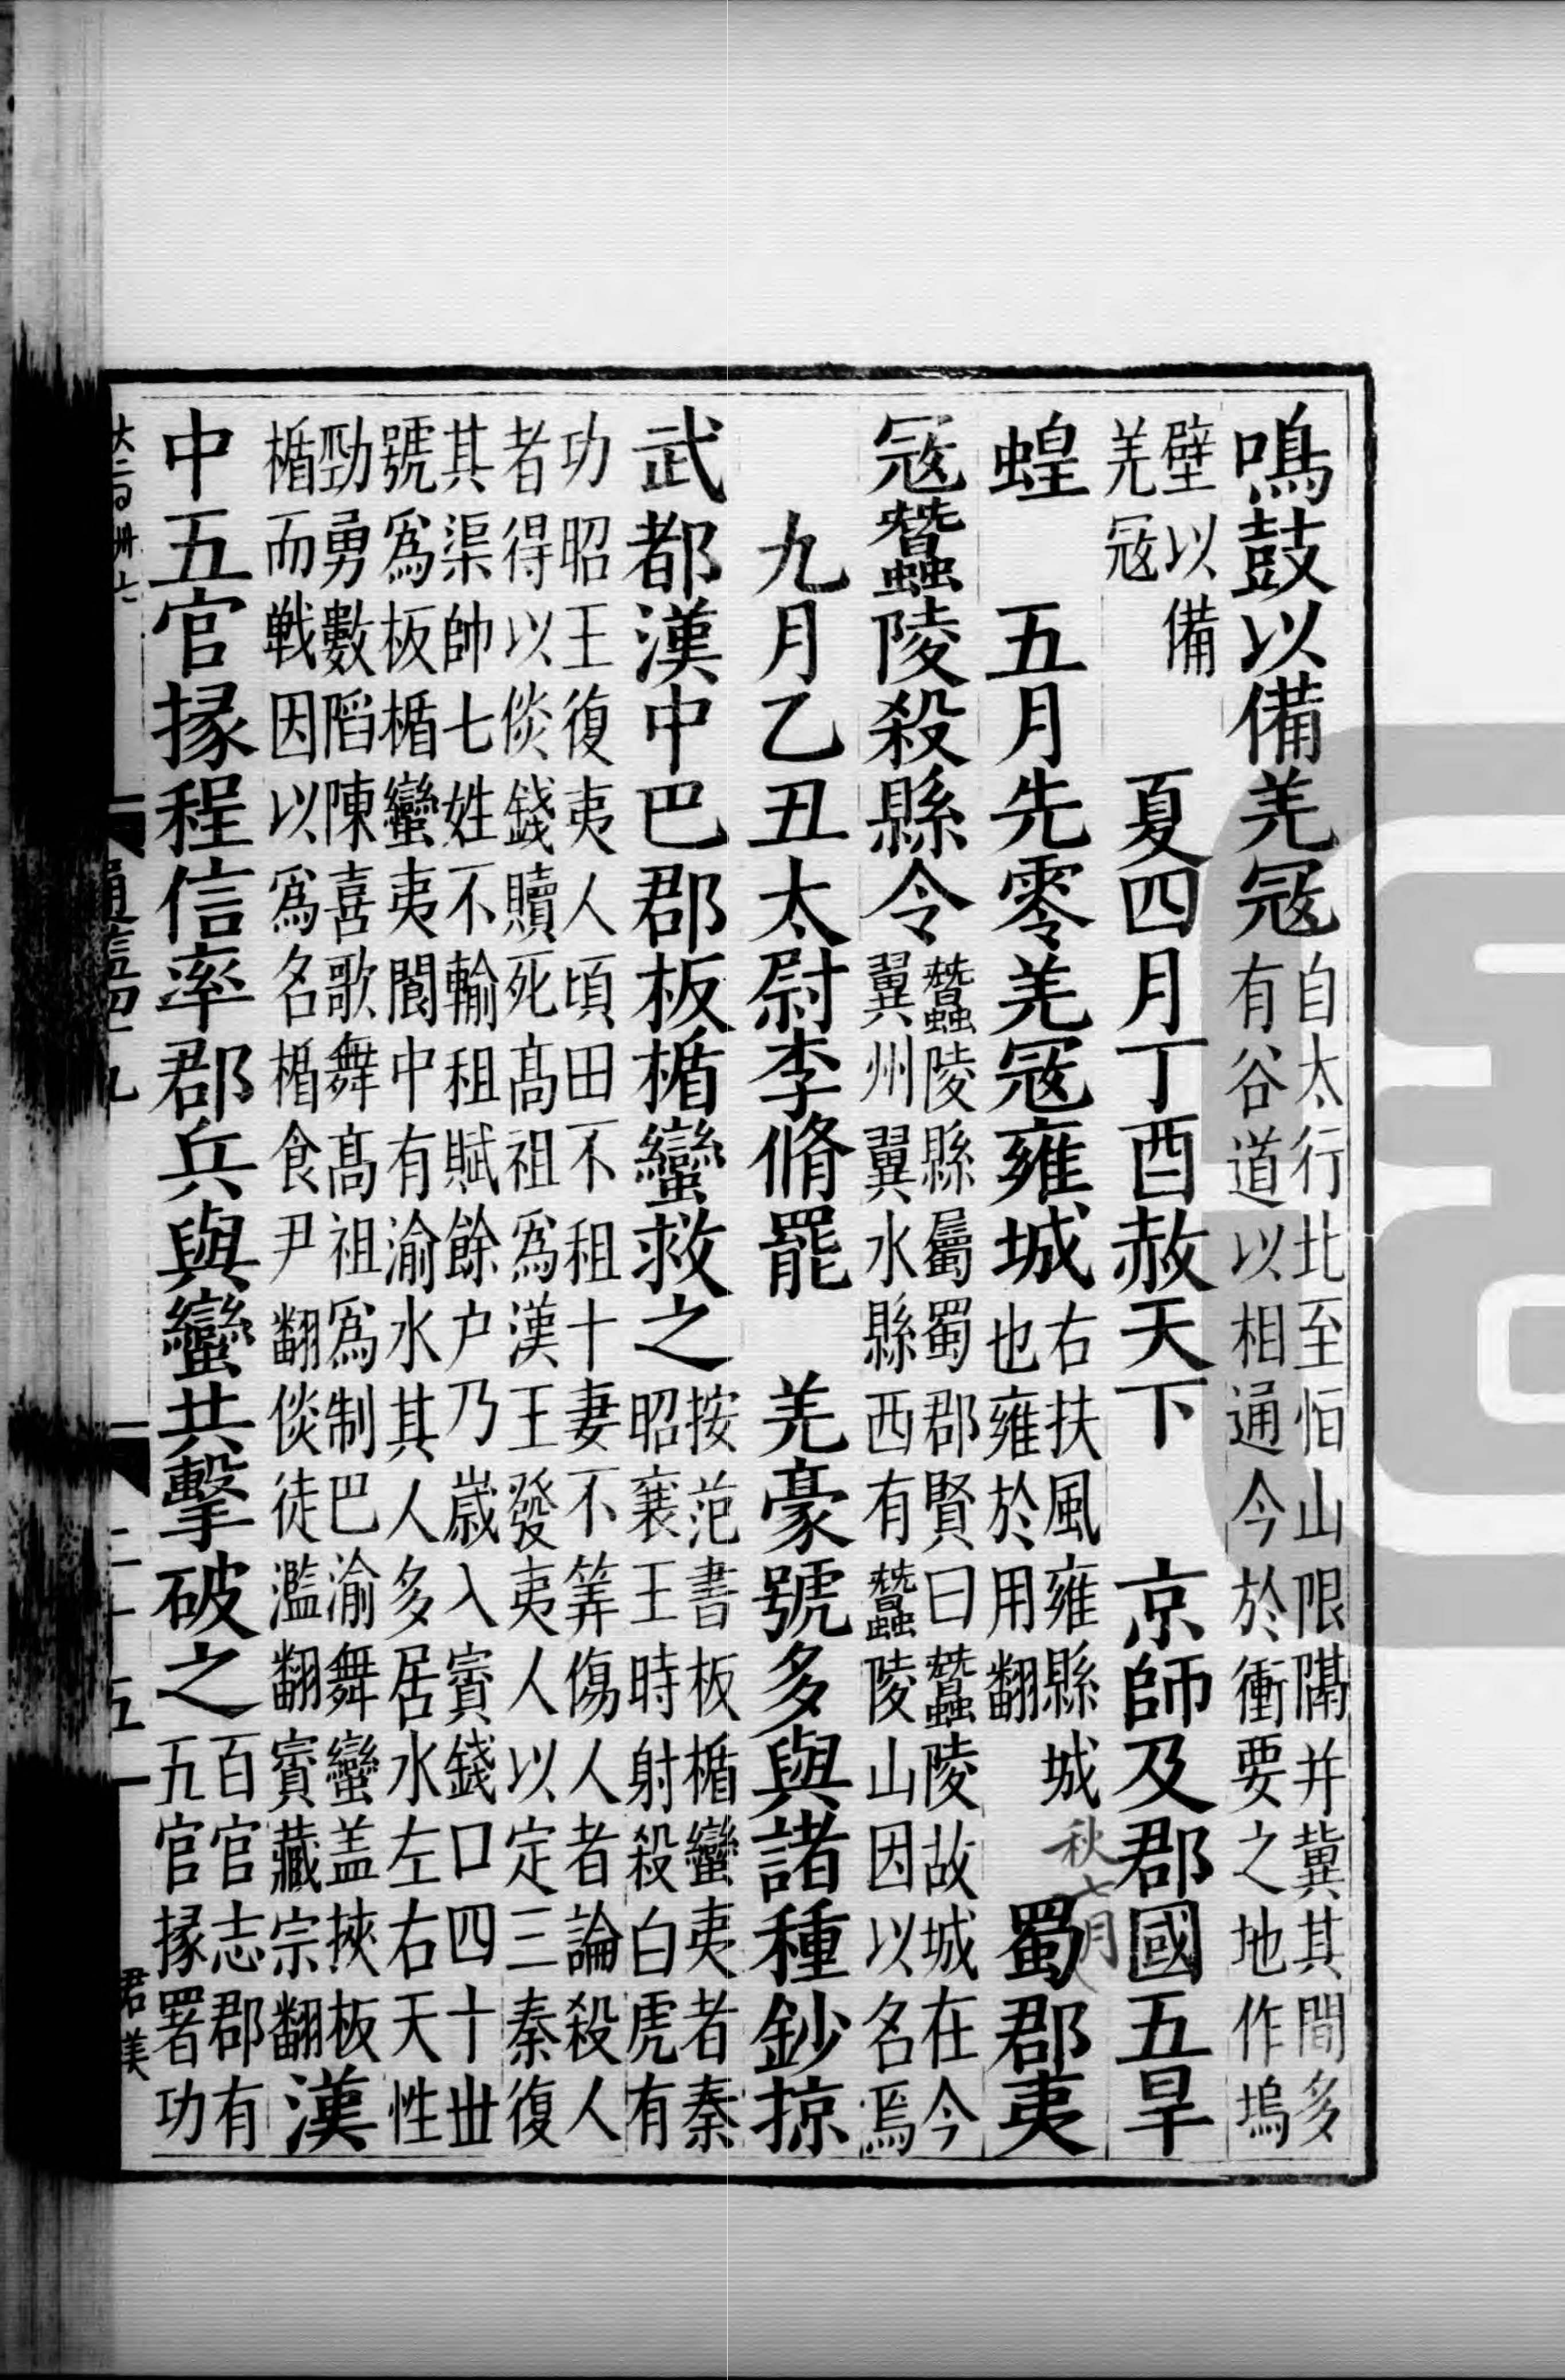 鳴鼓以備羌冦
自太行北至恒山限隔并冀其間多
有谷道以相通今於衝要之地作塢
壁以備
羌冦
夏四月丁酉赦天下 京師及郡國五旱
蝗 五月先零羌冦雍城
右扶風雍縣城
也雍於用翻
秋七月
蜀郡夷
冦蠶陵殺縣令
蠶陵縣屬蜀郡賢曰蠶陵故城在今
翼州翼水縣西有蠶陵山因以名焉
九月乙丑太尉李脩罷 羌豪號多與諸種鈔掠
武都漢中巴郡板楯蠻救之
按范書板楯蠻夷者秦
昭襄王時射殺白虎有
功昭王復夷人頃田不租十妻不筭傷人者論殺人
者得以倓錢贖死髙祖爲漢王發夷人以定三秦復
其渠帥七姓不輸租賦餘户乃嵗入賨錢口四十丗
號爲板楯蠻夷閬中有渝水其人多居水左右天性
勁勇數陷陳喜歌舞髙祖爲制巴渝舞蠻盖挾板
楯而戦因以爲名楯食尹翻倓徒濫翻賨藏宗翻
漢
中五官掾程信率郡兵與蠻共擊破之
百官志郡有
五官掾署功
君美